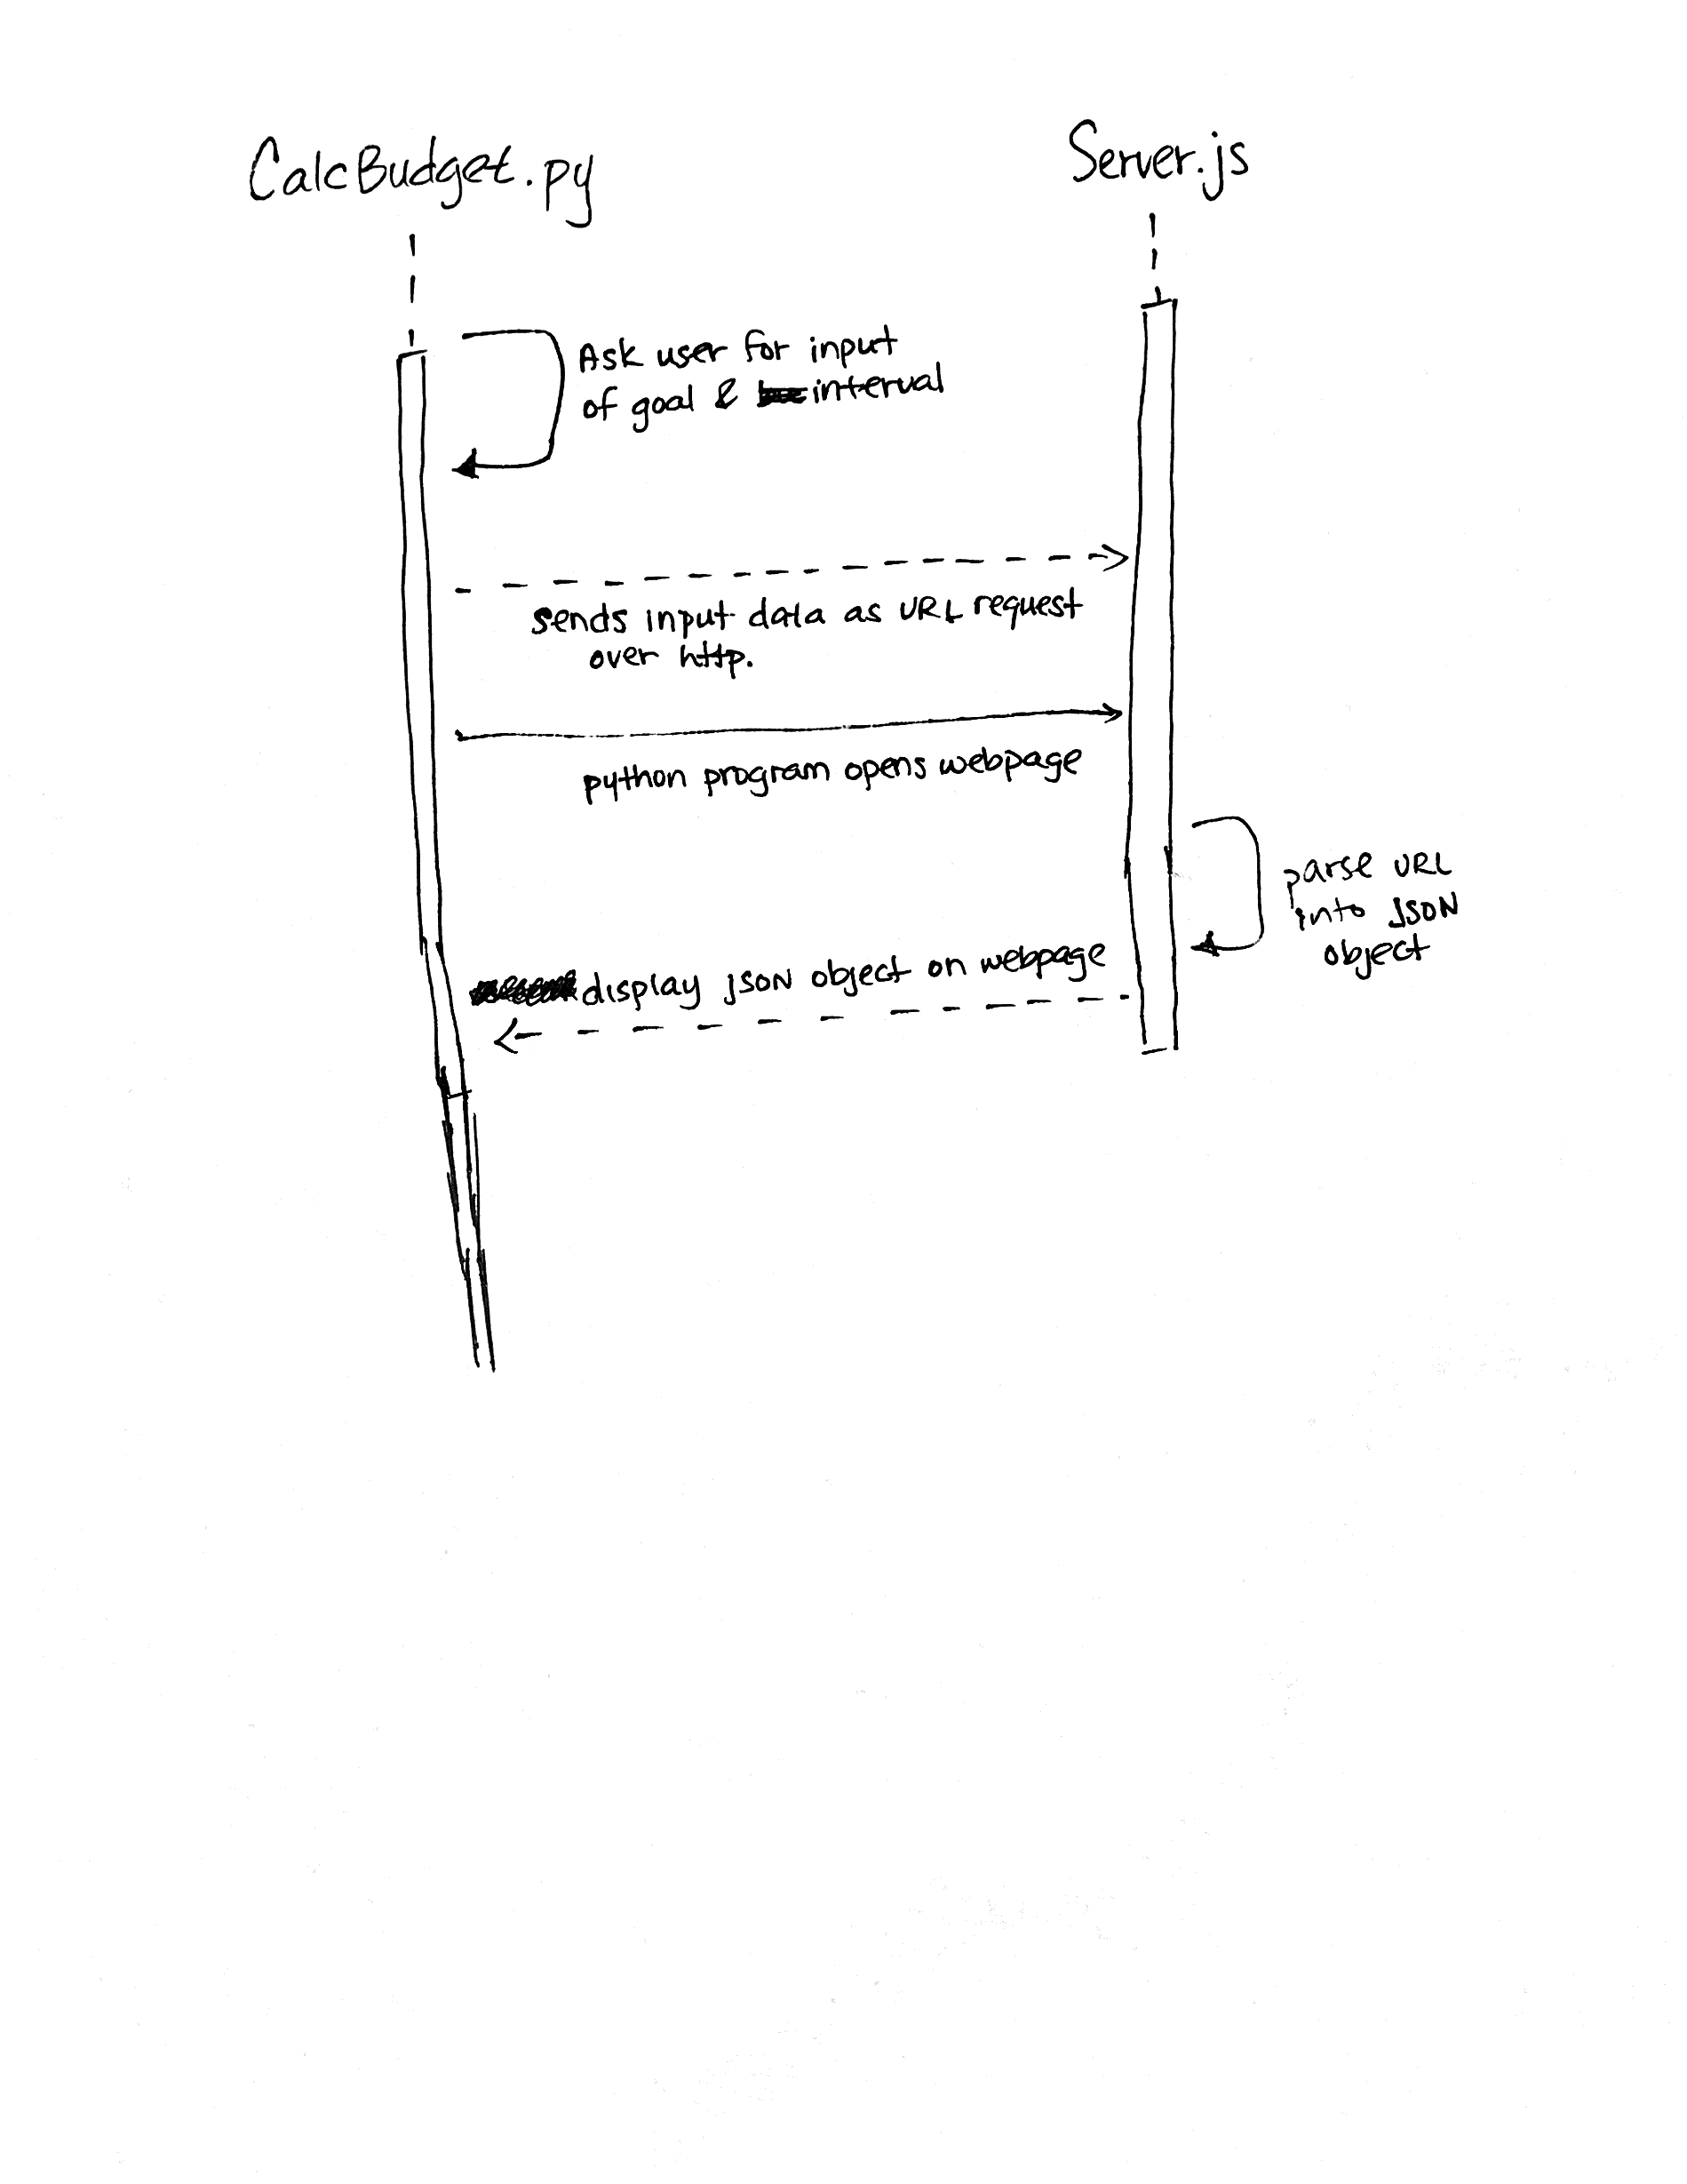 CalcBudget.py
Server.js
Ask user for input
of goal & interval
sends input data as URL request
over http.
python program opens webpage
parse URL
into JSON
object
display JSON object on webpage